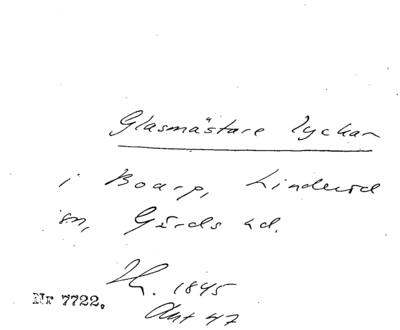 Glasmästare lyckan
i Boarp, Linderöd
sn, Gärds hd.
1845
Nr 7722.
Akt 47